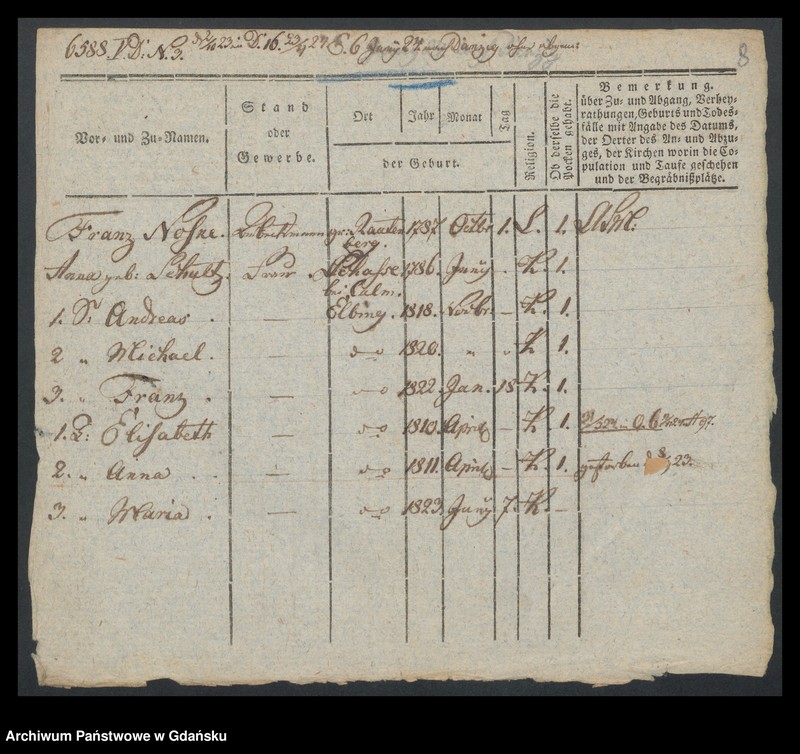 6588. I. D: N. 3. 23 in D: 16. 24 E. 6 Juny 24 nach Danzig
8
Vor- und Zu-Namen.
Stand
oder
Gewerbe.
Ort
Jahr
Monat
Tag
der Geburt.
Religion.
Ob derselbe die
Pocken gehabt.
Bemerkung.
über Zu- und Abgang, Verhey-
rathungen, Geburts und Todes-
fälle mit Angabe des Datums,
der Oerter des An- und Abzu-
ges, der Kirchen worin die Co-
pulation und Taufe geschehen
und der Begräbnißplätze.
Franz Nosne. Rauten 1787 Octbr 1. L. 1.
berg.
Anna geb: Schultz. Frau 1786. Juny - K. 1.
bei Culm.
1. S: Andreas . — Elbing. 1818. Novbr. — K. 1.
2 " Michael. — do 1820. " " K 1.
3. " Franz . — do 1822. Jan. 18 K. 1.
1. T: Elisabeth — do 1810. April — K. 1.
2. " Anna . — do 1811. April — K. 1. gestorben d 23.
3 " Maria . — do 1823. Juny 7. K. —
Archiwum Państwowe w Gdańsku